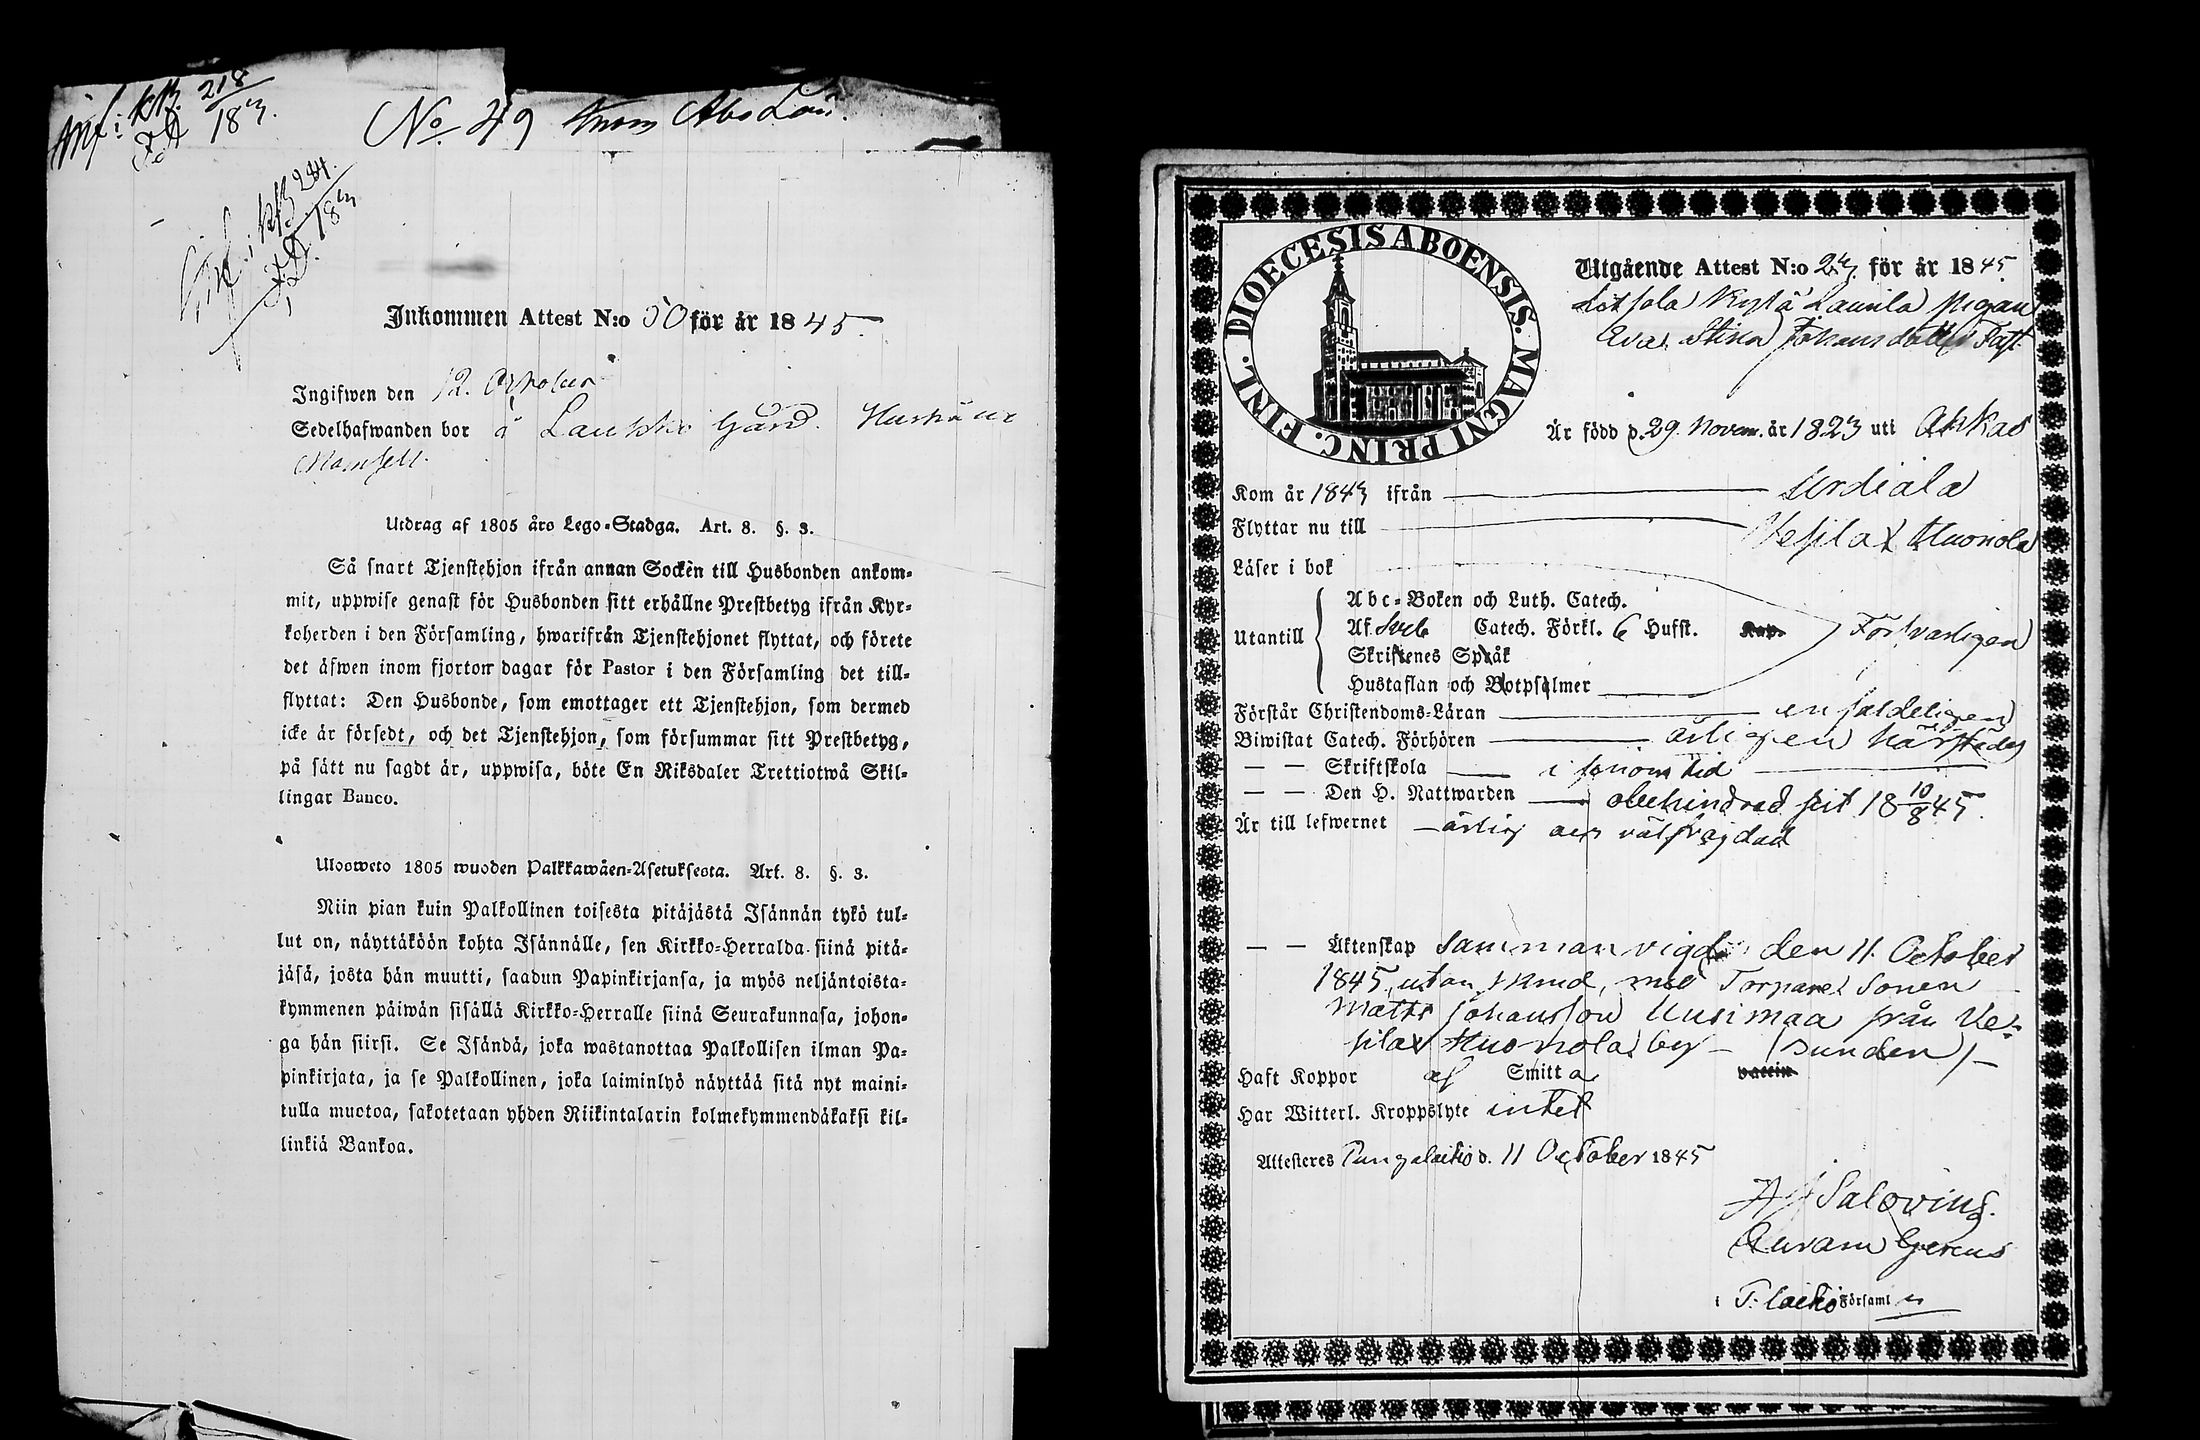 Inf: kB. 218
Fol. 183.
No. 49 Inom Abo Län.
Inf. i kB 284.
Fol. 183
Inkommen Attest N:o 50 för år 1845.
Ingifwen den 12. October
Sedelhafwanden bor å Laukko Gård.
Mamsell.
Utdrag af 1805 åro Lego-Stadga. Art. 8. §. 3.
Så snart Tjenstehjon ifrån annan Socken till Husbonden ankom-
mit, uppwise genast för Husbonden sitt erhållne Prestbetyg ifrån Kyr-
koherden i den Församling, hwarifrån Tjenstehjonet flyttat, och förete
det äfwen inom fjorton dagar för Pastor i den Församling det till-
flyttat: Den Husbonde, som emottager ett Tjenstehjon, som dermed
icke är försedt, och det Tjenstehjon, som försummar sitt Prestbetyg,
på sätt nu sagdt är, uppwisa, böte En Riksdaler Trettiotwå Skil-
lingar Banco.
Ulosweto 1805 wuoden Palkkawäen-Asetuksesta. Art. 8. §. 3.
Niin pian kuin Palkollinen toisesta pitäjästä Isännän tykö tul-
lut on, näyttäköön kohta Isännälle, sen Kirkko-Herralda siinä pitä-
jäsä, josta hän muutti, saadun Papinkirjansa, ja myös neljäntoista-
kymmenen päiwän sisällä Kirkko-Herralle siinä Seurakunnasa, johon-
ga hän siirsi. Se Isändä, joka wastanottaa Palkollisen ilman Pa-
pinkirjata, ja se Palkollinen, joka laiminlyö näyttää sitä nyt maini-
tulla muotoa, sakotetaan yhden Riikintalarin kolmekymmendäkaksi kil-
linkiä Bankoa.
DIOECESIS ABOENSIS. MAGNI PRINC. FINL.
Utgående Attest N:o 23. för år 1845
Laurila Pigan
Eva Stina Johansdotter
Är född d. 29. Novem. år 1823 uti Akkas
Kom år 1843 ifrån Urdiala
Flyttar nu till Vesilax Huonola
Läser i bok
Utantill
Abc-Boken och Luth. Catech.
Af Sveb Catech. Förkl. 6 Hufst. Kap. Försvarligen
Skriftenes Språk
Hustaflan och Botpsalmer
Förstår Christendoms-Läran enfaldeligen
Biwistat Catech. Förhören årligen härstädes
— — Skriftskola i sinom tid
— — Den H. Nattwarden obehindrad sist 18 10/8 45.
Är till lefwernet ärlig och välfrägdad
— — Äktenskap Sammanvigde den 11. October
1845, utan skrud, med Torpare Sonen
Matts Johansson Uusimaa från Ve-
silax Huonola by — (Sunden) —
Haft Koppor af Smitta vaccin
Har Witterl. Kroppslyte intet
Attesteres Pungalaitio d. 11 October 1845
Salovius.
i P:laitio Församl